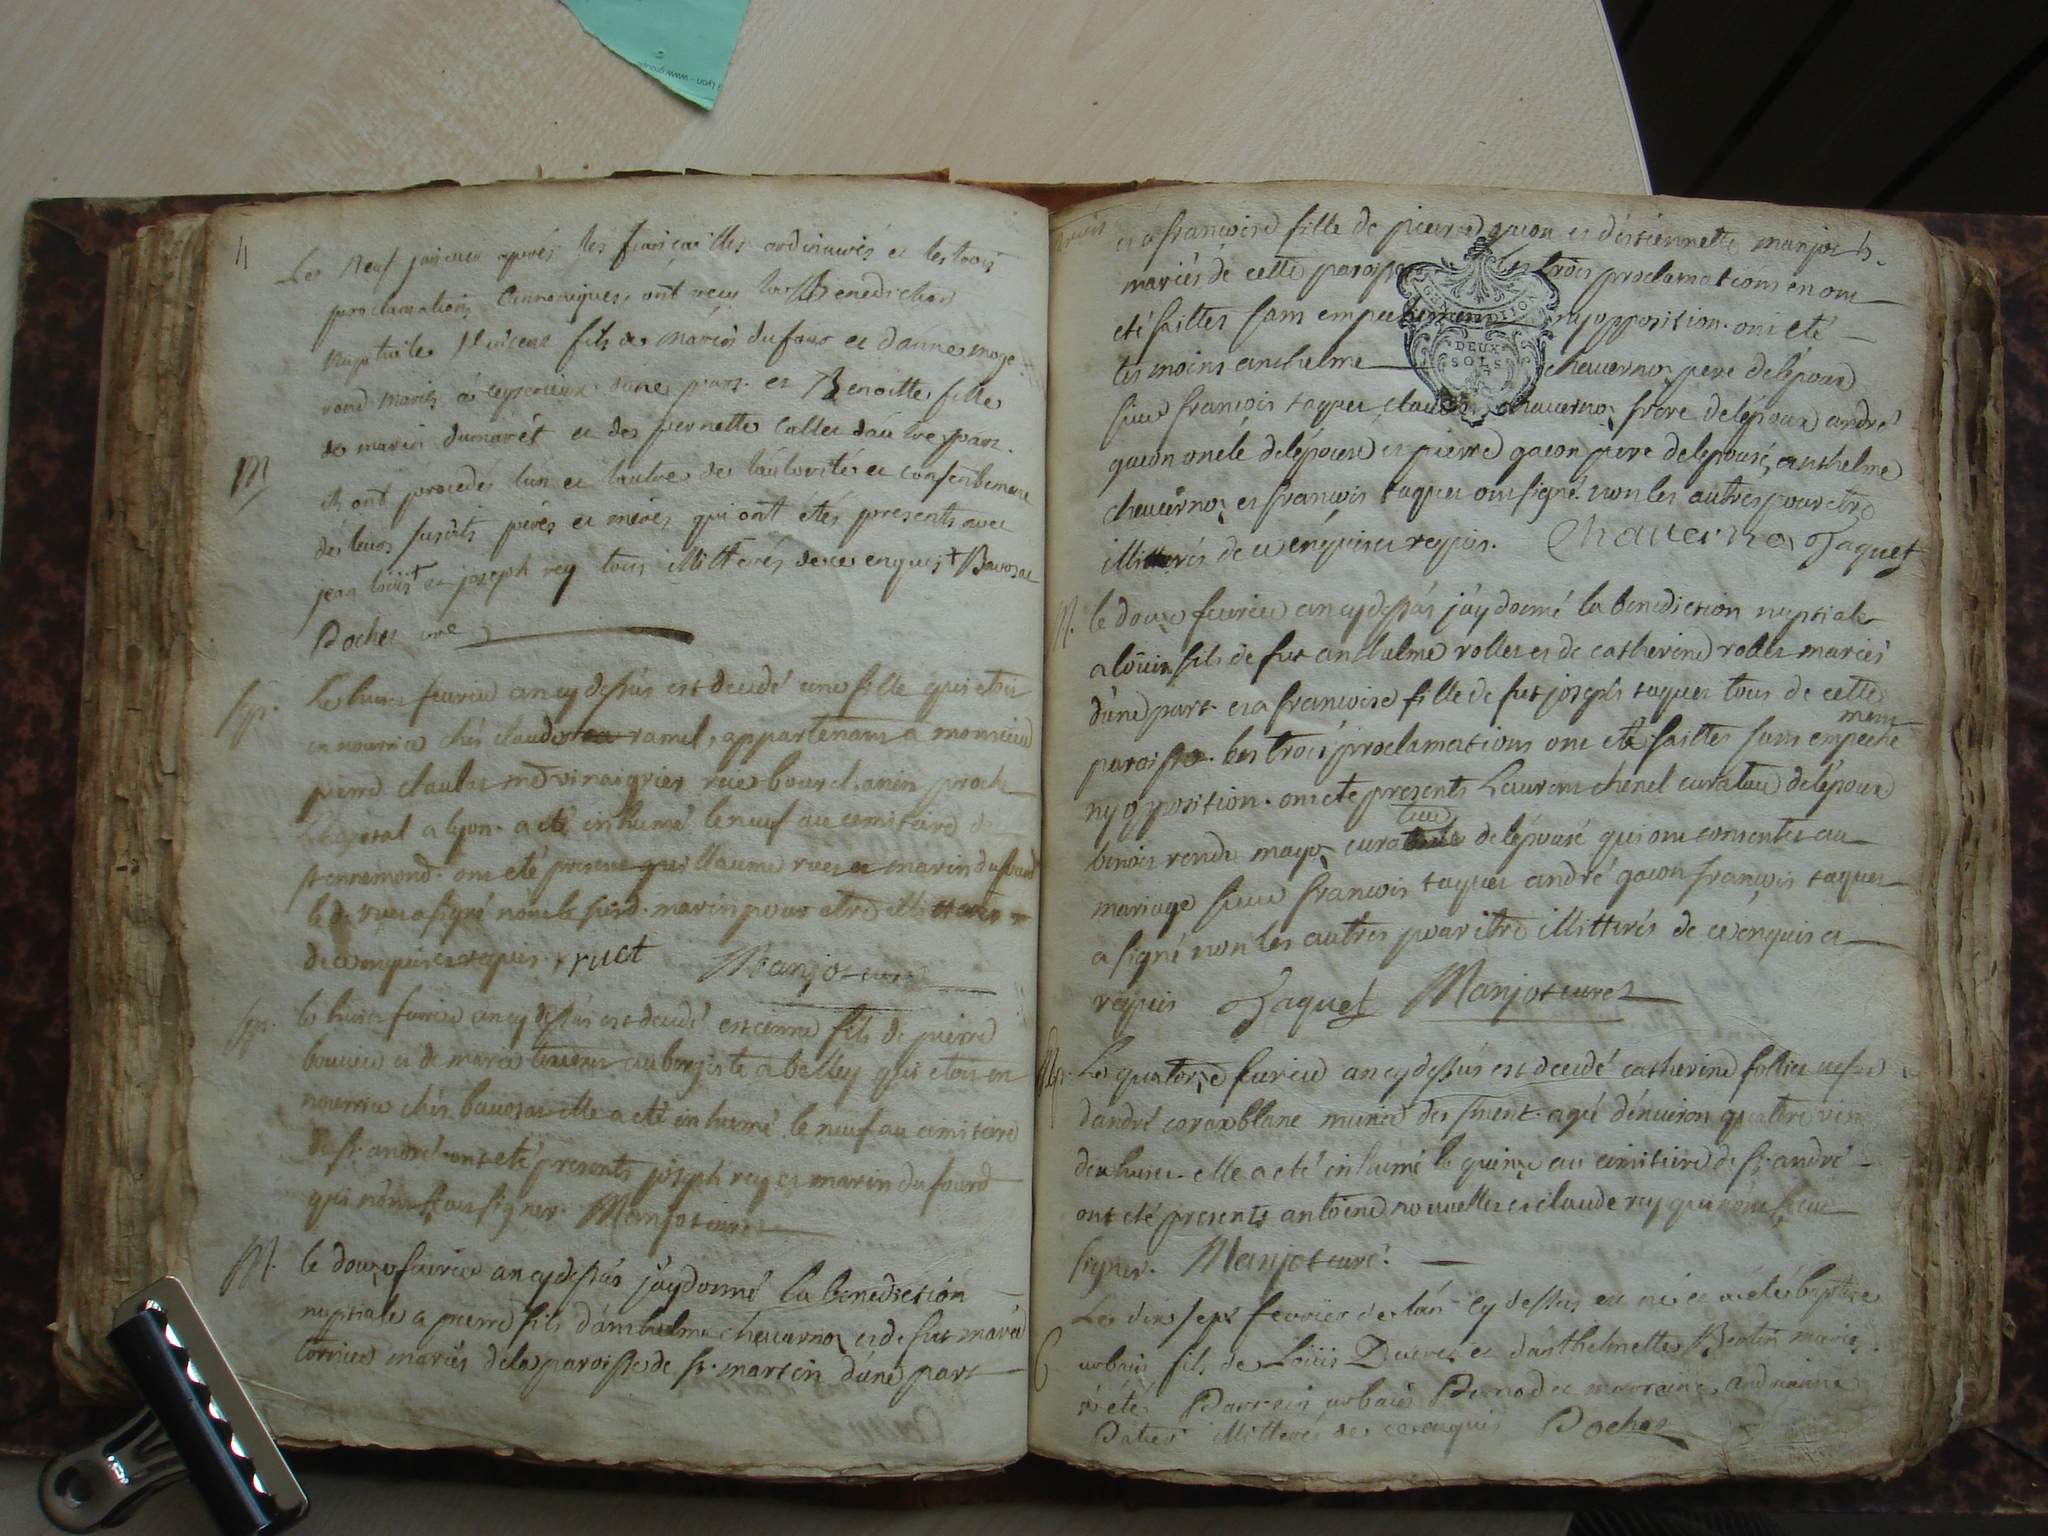 Le neuf janvier après les fiançailles ordinaires et les trois
proclamations Cannoniques ont reçu la Benediction
nuptiale fils de marin dufour et d'anne
mariés à d'une part et Benoitte fille
de marin dumarêt et de pernette Callet d'autre part.
M
ils ont procedés l'un et l'autre de l'autorité et consentement
de leurs susdits pères et mères qui ont étés presents avec
jean loüis + et joseph rey tous illitterés de ce enquis + Bavosat
Pochet curé
Sep.
Le huit fevrier an cy dessus est decedé une fille qui etoit
en nourrice chés claude ramel, appartenant a monsieur
pierre claulas md vinaigrier rue bourchanin proche
l'hopital a lyon. a eté inhumé le neuf au cemitiere de
st ennemond. ont eté present guillaume ruet et marin dufourd
led. ruet a signé non le susd. marin pour etre illitteré
de ce enquis et requis. ruet Manjot curé
Sep.
le huit fevrier an cy dessus est decedé estienne fils de pierre
bouvier et de marie aubergiste a belley qui etoit en
nourrice chés bavosat elle a eté inhumé le neuf au cemitiere
de st. andré ont eté presents joseph rey et marin dufourd
qui n'ont sceu signer. Manjot curé
M.
le douze fevrier an cy dessus j'ay donné la benediction
nuptiale a pierre fils d'anthelme chavernoz et de fut marie
tornier mariés de la paroisse de st. martin d'une part
et a francoise fille de pierre gacon et d'estiennette manjot
mariés de cette paroisse les trois proclamations en ont
eté faittes sans empechement ny opposition. ont eté
tesmoins anthelme chevernoz pere de l'époux
sieur françois taquet claude chavernoz frere de l'époux andré
gacon oncle de l'épouse et pierre gacon pere de l'épouse, anthelme
chevernoz et françois taquet ont signé non les autres pour etre
illitterés de ce enquis et requis. Chavernoz Taquet
GEN DEUX SOLS
M.
le douze fevrier an cy dessus j'ay donné la benediction nuptiale
a loüis fils de fut anthelme rollet et de catherine rollet mariés
d'une part. et a francoise fille de fut joseph taquet tous de cette
paroisse. les trois proclamations ont eté faittes sans empeche
ment
ny opposition. ont eté presents Laurent chenel curateur de l'époux
benoit rendu mayoz curateur de l'épouse qui ont consentu au
teur
mariage sieur françois taquet andré gacon françois taquet
a signé non les autres pour etre illitterés de ce enquis et
requis Taquet Manjot curé
Sep.
Le quatorze fevrier an cy dessus est decedé catherine follier vefve
d'andré blanc munie des sment. agé d'environ quatre vin
elle a eté inhumé le quinze au cimitiere de st. andré
ont eté presents antoine nouvellet et claude rey qui n'ont sceu
signer. Manjot curé.
Le dix sept fevrier de l'an cy dessus est né et a été baptisé
urbain fils de Loüis et d'anthelmette Bertin mariés
a été Parrain urbain et marraine
illitterés de ce enquis Pochet